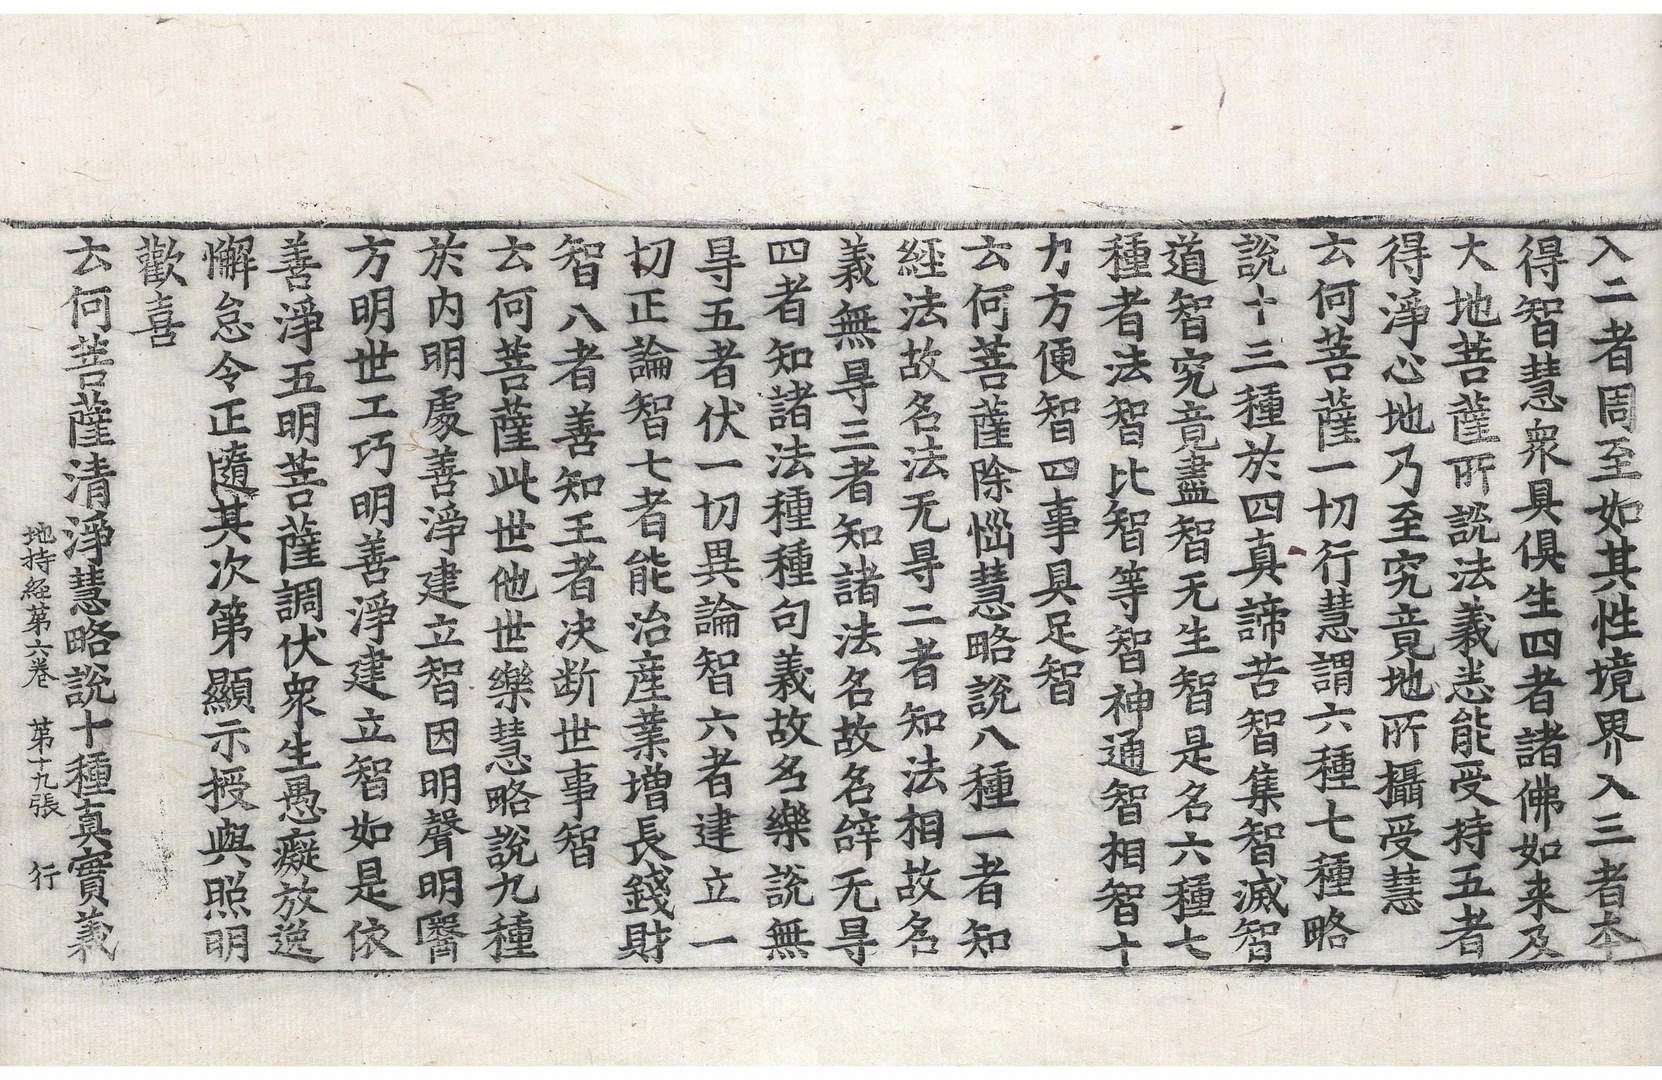 入二者周至如其性境界入三者本
得智慧衆具俱生四者諸佛如来及
大地菩薩所說法義悉能受持五者
得淨心地乃至究竟地所攝受慧
云何菩薩一切行慧謂六種七種略
說十三種於四真諦苦智集智滅智
道智究竟盡智无生智是名六種七
種者法智比智等智神通智相智十
力方便智四事具足智
云何菩薩除惱慧略說八種一者知
經法故名法无㝵二者知法相故名
義無㝵三者知諸法名故名辝无㝵
四者知諸法種種句義故名樂說無
㝵五者伏一切異論智六者建立一
切正論智七者能治産業增長錢財
智八者善知王者决断世事智
云何菩薩此世他世樂慧略說九種
於内明處善淨建立智因明聲明醫
方明世工巧明善淨建立智如是依
善淨五明菩薩調伏衆生愚癡放逸
懈怠令正隨其次第顯示授與照明
歡喜
云何菩薩清淨慧略說十種真實義
地持経第六卷 第十九張 行